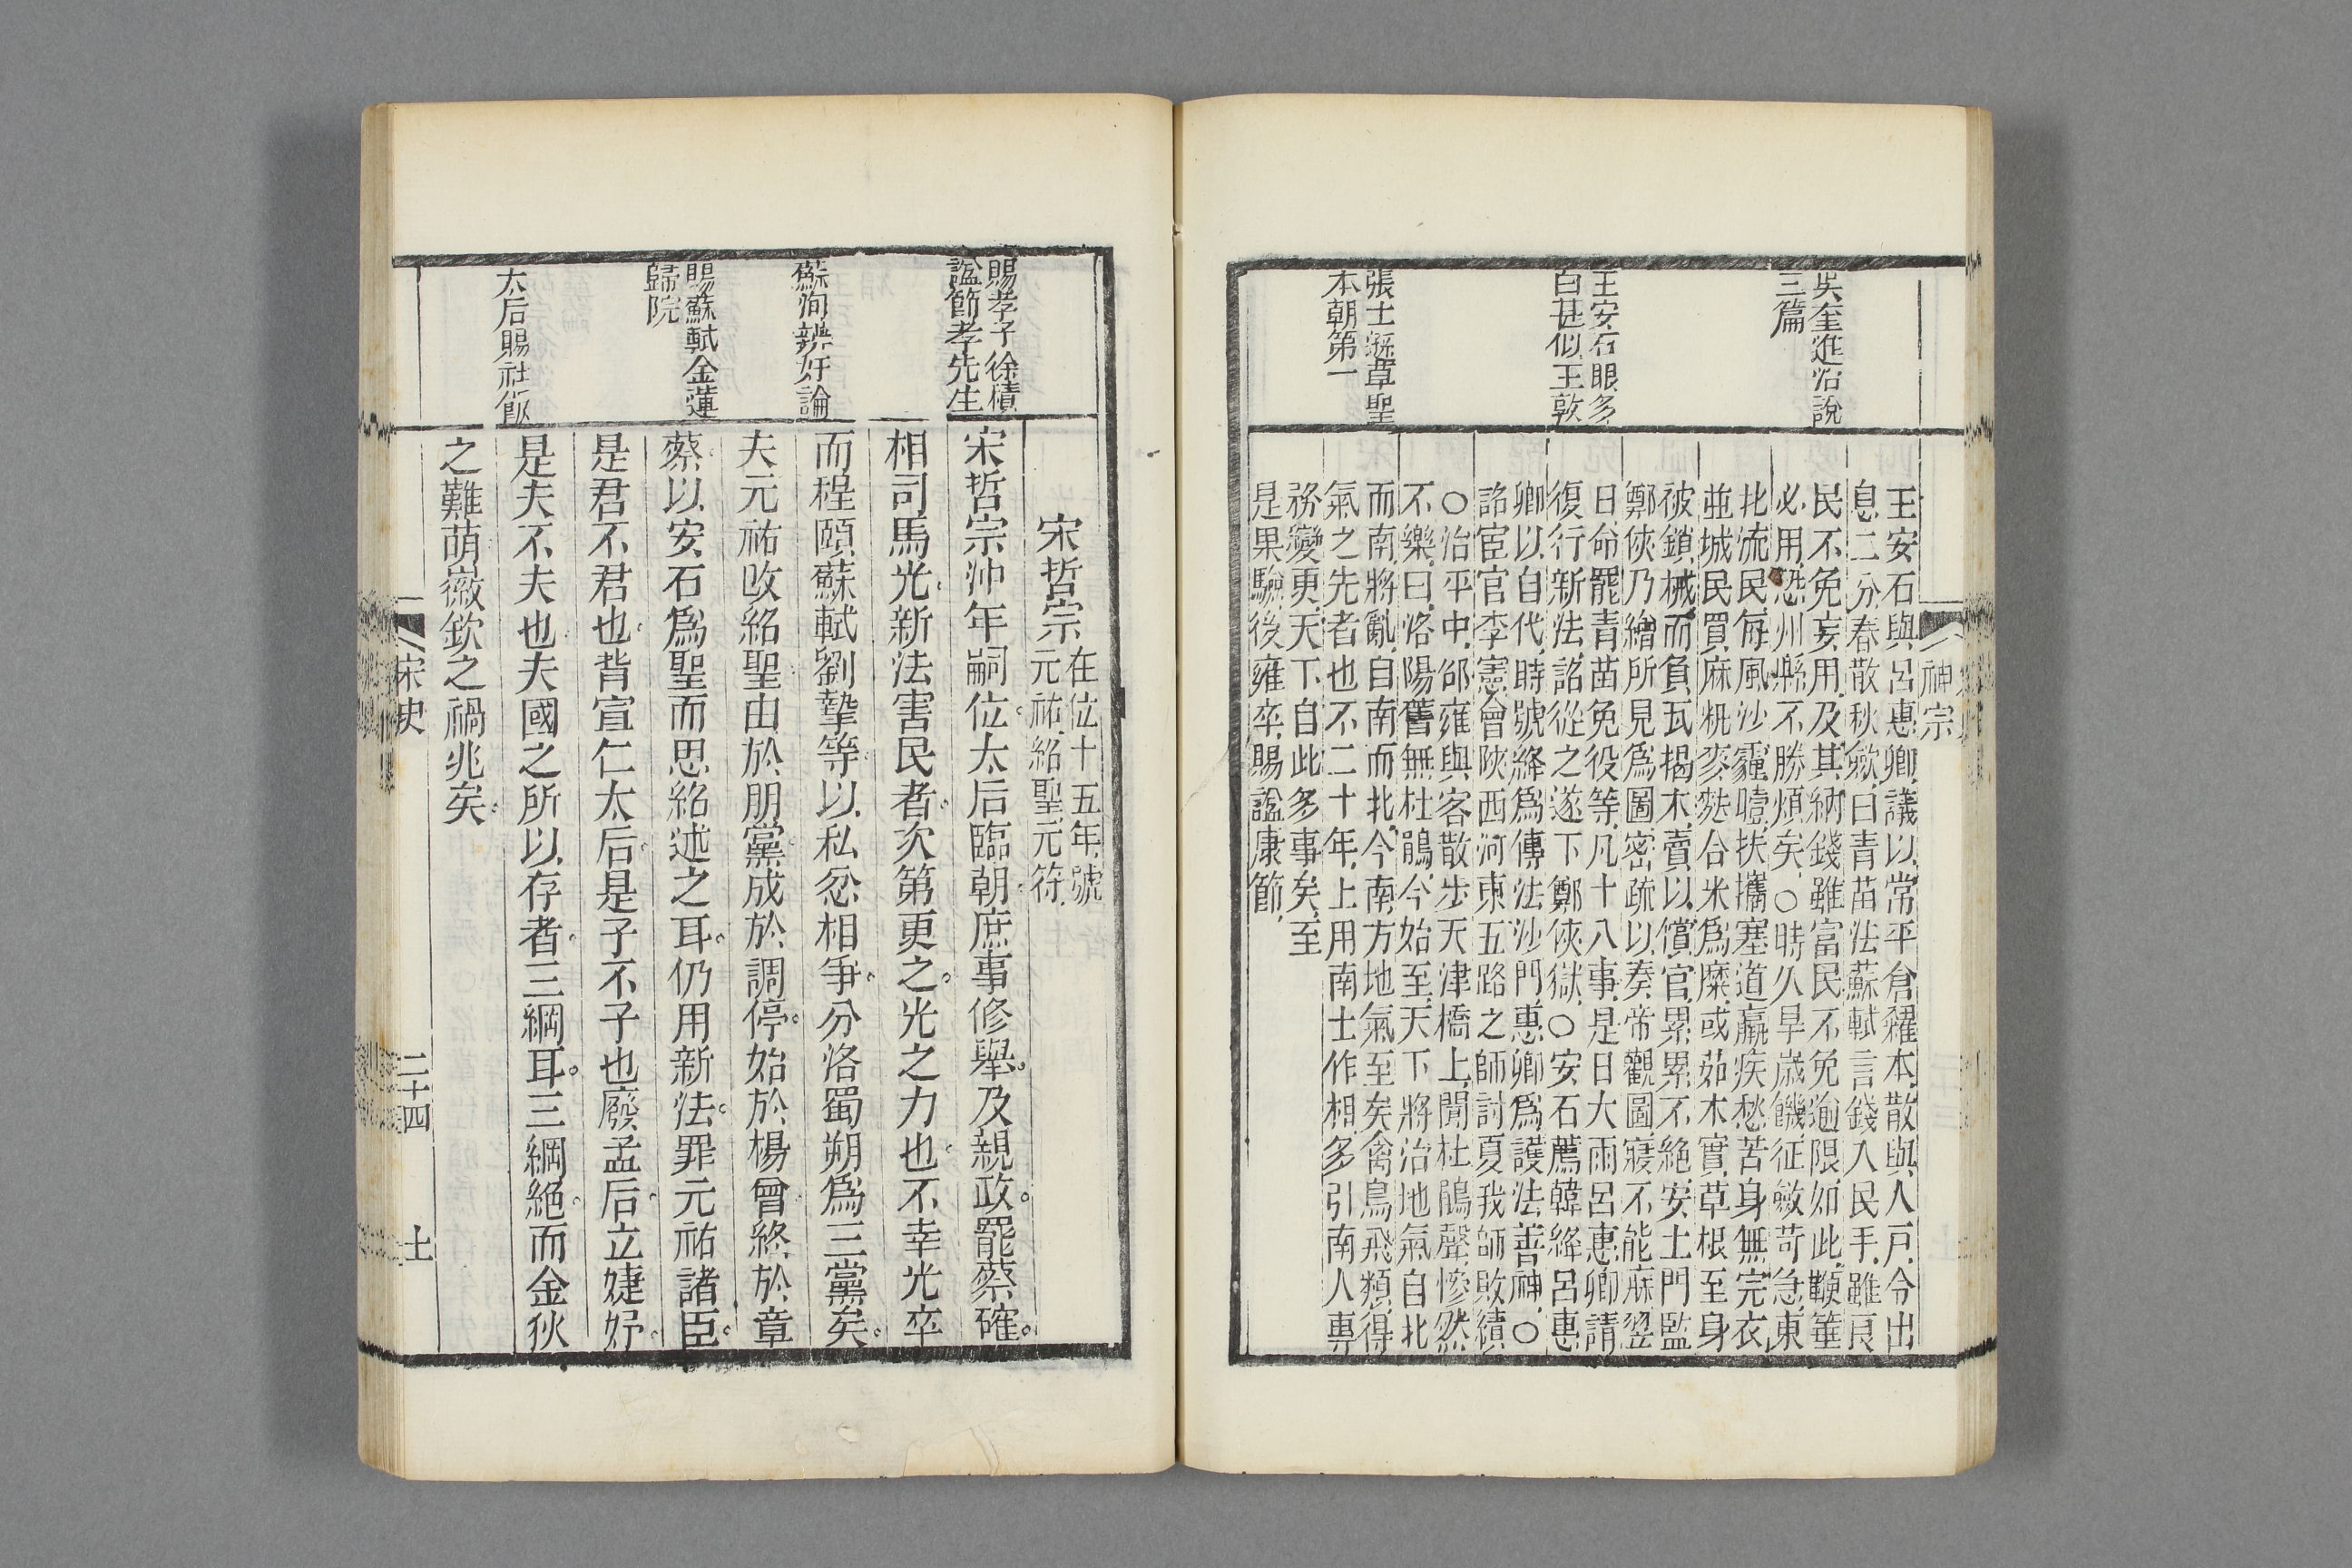 神宗
吳奎進治說
三篇
王安石眼多
白甚似王敦
張士遜草聖
本朝第一
王安石與呂惠卿議以常平倉糴本散與人戶令出
息二分春散秋斂曰青苗法蘇軾言錢入民手雖良
民不免妄用及其納錢雖富民不免逾限如此鞭箠
必用恐州縣不勝煩矣○時久旱歲饑征斂苛急東
北流民每風沙霾曀扶攜塞道羸疾愁苦身無完衣
並城民買麻籸麥麩合米爲糜或茹木實草根至身
被鎖械而負瓦揭木賣以償官累累不絕安上門監
鄭俠乃繪所見爲圖密疏以奏帝觀圖寢不能寐翌
日命罷青苗免役等凡十八事是日大雨呂惠卿請
復行新法詔從之遂下鄭俠獄○安石薦韓絳呂惠
卿以自代時號絳爲傳法沙門惠卿爲護法善神○
詔宦官李憲會陝西河東五路之師討夏我師敗績
○治平中邵雍與客散步天津橋上聞杜鵑聲慘然
不樂曰洛陽舊無杜鵑今始至天下將治地氣自北
而南將亂自南而北今南方地氣至矣禽鳥飛類得
氣之先者也不二十年上用南士作相多引南人專
務變更天下自此多事矣至
是果驗後雍卒賜謚康節
賜孝子徐積
謚節孝先生
蘇洵辨奸論
賜蘇軾金蓮
歸院
太后賜社飯
宋哲宗
在位十五年號
元祐紹聖元符
宋哲宗沖年嗣位太后臨朝庶事修舉及親政罷蔡確
相司馬光新法害民者次第更之光之力也不幸光卒
而程頤蘇軾劉摯等以私忿相爭分洛蜀朔爲三黨矣
夫元祐改紹聖由於朋黨成於調停始於楊曾終於章
蔡以安石爲聖而思紹述之耳仍用新法罪元祐諸臣
是君不君也背宣仁太后是子不子也廢孟后立婕妤
是夫不夫也夫國之所以存者三綱耳三綱絕而金狄
之難萌徽欽之禍兆矣
宋史
二十四
上